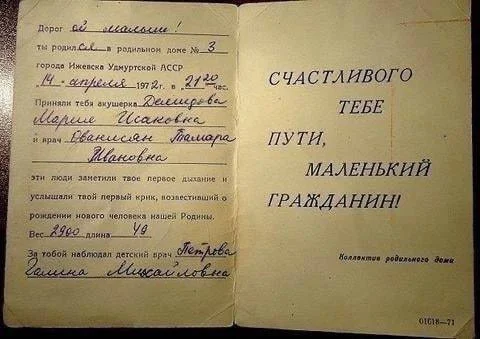 Дорог ой малыш!
ты родился в родильном доме № 3
города Ижевска Удмуртской АССР
"14" апреля 1972 г. в 21 20 час.
Приняли тебя акушерка Демидова
Мария Исановна
и врач Еванисян Тамара
Ивановна
эти люди заметили твое первое дыхание и
услышали твой первый крик, возвестивший о
рождении нового человека нашей Родины.
Вес 2900 длина 49
За тобой наблюдал детский врач Петрова
Галина Михайловна
СЧАСТЛИВОГО
ТЕБЕ
ПУТИ,
МАЛЕНЬКИЙ
ГРАЖДАНИН!
Коллектив родильного дома
01618—71